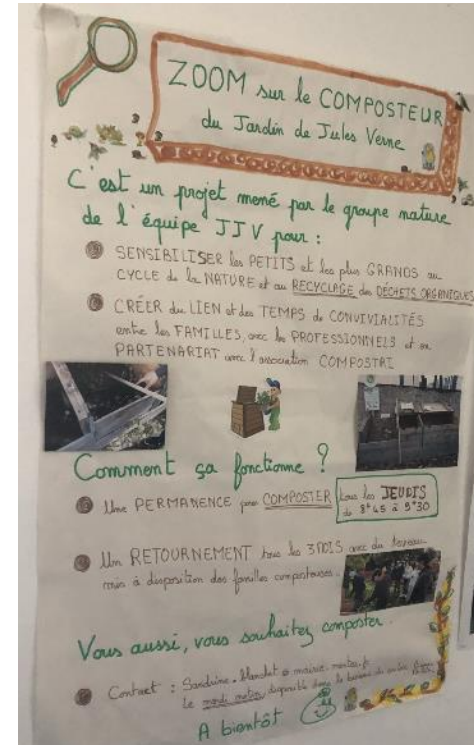 ZOOM sur le COMPOSTEUR
du Jardin de Jules Verne
C'est un projet mené par le groupe nature
de l'équipe JJV pour :
SENSIBILISER les PETITS et les plus GRANDS au
CYCLE de la NATURE et au RECYCLAGE des DÉCHETS ORGANIQUES
CRÉER du LIEN et des TEMPS de CONVIVIALITÉS
entre les FAMILLES, avec les PROFESSIONNELS et en
PARTENARIAT avec l'association COMPOSTRI
Comment ça fonctionne ?
Une PERMANENCE pour COMPOSTER tous les JEUDIS
de 8h45 à 9h30
Un RETOURNEMENT tous les 3 MOIS avec du terreau
mis à disposition des familles composteuses.
Vous aussi, vous souhaitez composter.
Contact : Sandrine.
Le mardi matin, disponible dans le bureau du
A bientôt